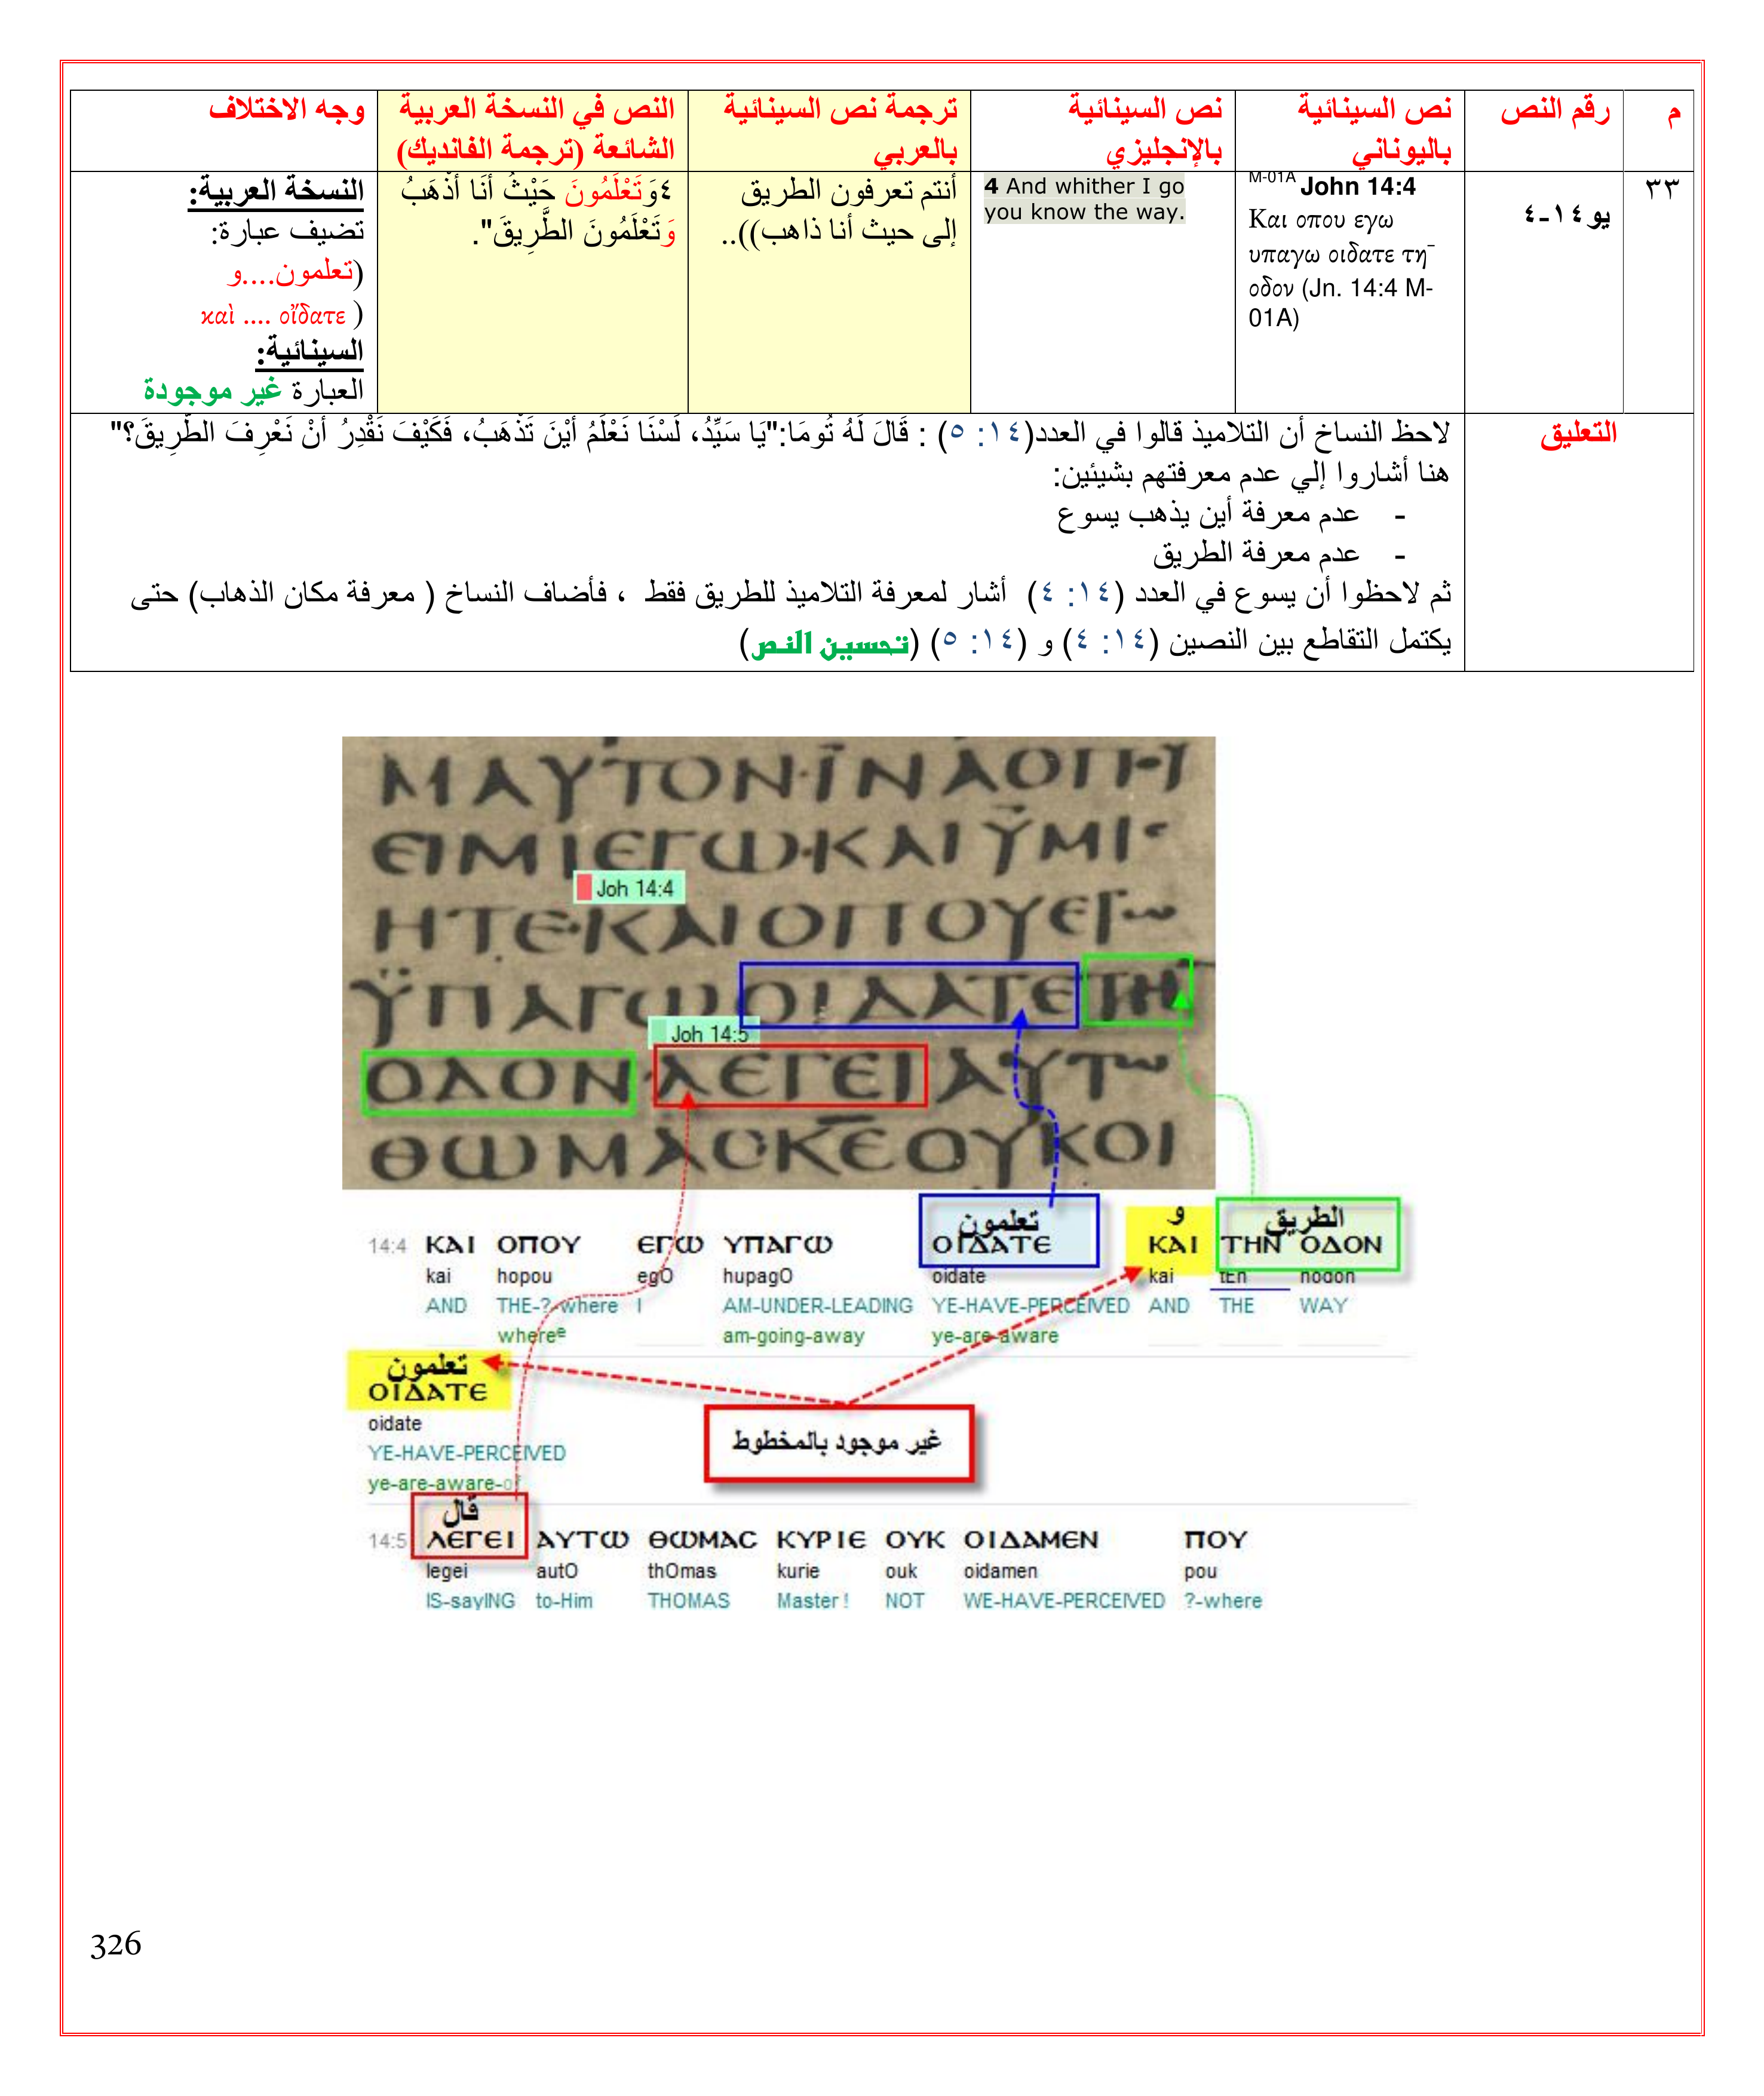 م
رقم النص
نص السينائية
باليوناني
نص السينائية
بالإنجليزي
ترجمة نص السينائية
بالعربي
النص في النسخة العربية
الشائعة (ترجمة الفانديك)
وجه الاختلاف
٣٣
يو ١٤-٤
M-01A John 14:4
Και οπου εγω
υπαγω οιδατε τη¯
οδον (Jn. 14:4 M-
01A)
4 And whither I go
you know the way.
أنتم تعرفون الطريق
إلى حيث أنا ذاهب))..
٤وَتَعْلَمُونَ حَيْثُ أَنَا أَذْهَبُ
وَتَعْلَمُونَ الطَّرِيقَ".
النسخة العربية:
تضيف عبارة:
(تعلمون....و
καὶ .... οἴδατε )
السينائية:
العبارة غير موجودة
التعليق
لاحظ النساخ أن التلاميذ قالوا في العدد(١٤: ٥) : قَالَ لَهُ تُومَا:"يَا سَيِّدُ، لَسْنَا نَعْلَمُ أَيْنَ تَذْهَبُ، فَكَيْفَ نَقْدِرُ أَنْ نَعْرِفَ الطَّرِيقَ؟"
هنا أشاروا إلي عدم معرفتهم بشيئين:
- عدم معرفة أين يذهب يسوع
- عدم معرفة الطريق
ثم لاحظوا أن يسوع في العدد (١٤: ٤) أشار لمعرفة التلاميذ للطريق فقط ، فأضاف النساخ ( معرفة مكان الذهاب) حتى
يكتمل التقاطع بين النصين (١٤: ٤) و (١٤: ٥) (تحسين النص)
ΜΑΥΤΟΝ·ΪΝΑΟΠΗ
ΕΙΜΙΕΓΩ·ΚΑΙΫΜΙ
Joh 14:4
ΗΤΕ·ΚΑΙΟΠΟΥΕΓω
ΫΠΑΓΩΟΙΔΑΤΕΤΗ¯
Joh 14:5
ΟΔΟΝ·ΛΕΓΕΙΑΥΤω
ΘΩΜΑΣΚΕΟΥΚΟΙ
تعلمون و الطريق
14:4 ΚΑΙ ΟΠΟΥ ΕΓΩ ΥΠΑΓΩ ΟΙΔΑΤΕ ΚΑΙ ΤΗΝ ΟΔΟΝ
kai hopou egO hupagO oidate kai tEn hodon
AND THE-?-where I AM-UNDER-LEADING YE-HAVE-PERCEIVED AND THE WAY
whereᵉ am-going-away ye-are-aware
تعلمون
ΟΙΔΑΤΕ
oidate
غير موجود بالمخطوط
YE-HAVE-PERCEIVED
ye-are-aware-of
قال
14:5 ΛΕΓΕΙ ΑΥΤΩ ΘΩΜΑC ΚΥΡΙΕ ΟΥΚ ΟΙΔΑΜΕΝ ΠΟΥ
legei autO thOmas kurie ouk oidamen pou
IS-sayING to-Him THOMAS Master ! NOT WE-HAVE-PERCEIVED ?-where
326